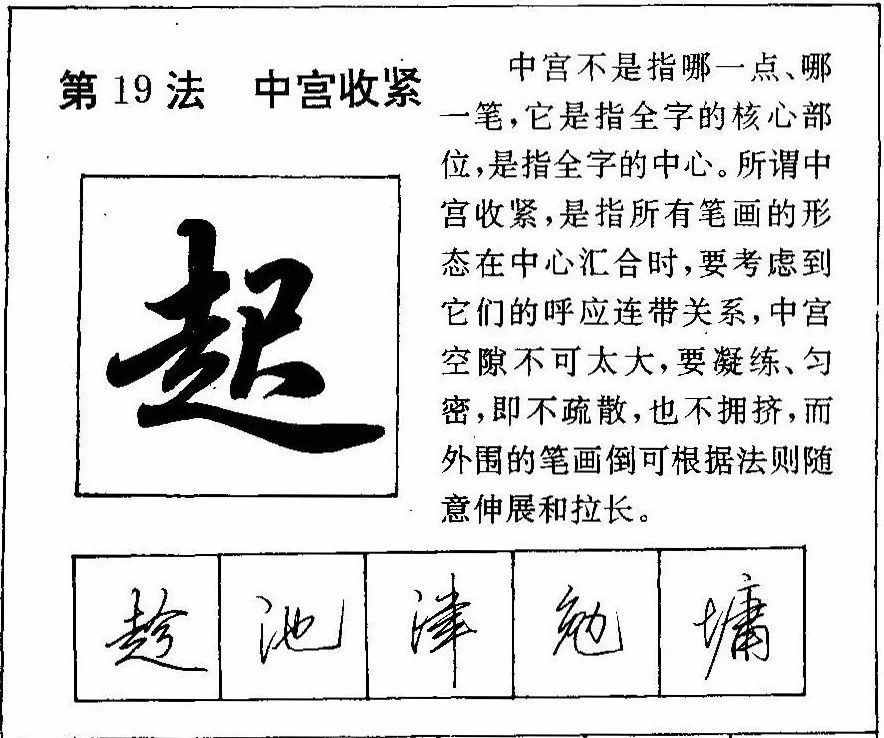 第19法 中宫收紧
中宫不是指哪一点、哪
一笔,它是指全字的核心部
位,是指全字的中心。所谓中
宫收紧,是指所有笔画的形
态在中心汇合时,要考虑到
它们的呼应连带关系,中宫
空隙不可太大,要凝练、匀
密,即不疏散,也不拥挤,而
外围的笔画倒可根据法则随
意伸展和拉长。
起
趁 池 津 勉 墉